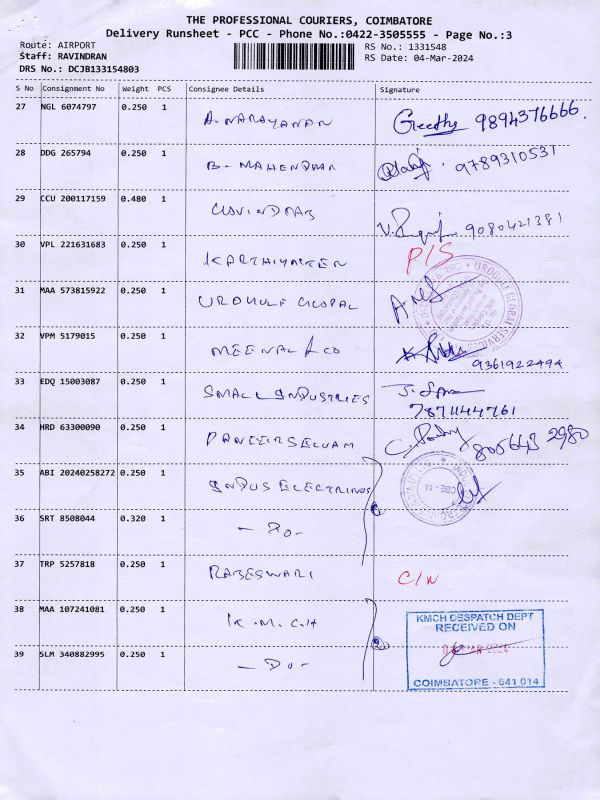 THE PROFESSIONAL COURIERS, COIMBATORE
Delivery Runsheet - PCC - Phone No.:0422-3505555 - Page No.:3
Route: AIRPORT RS No.: 1331548
Staff: RAVINDRAN RS Date: 04-Mar-2024
DRS No.: DCJB133154803
S No Consignment No Weight PCS Consignee Details Signature
27 NGL 6074797 0.250 1 A. NARAYANAN Geetha 9894376666.
28 DDG 265794 0.250 1 B. MAHENDRAN 9789310531
29 CCU 200117159 0.480 1 9080421381
30 VPL 221631683 0.250 1 KARTHIYAYEEN P/S
31 MAA 573815922 0.250 1 GLOBAL UROGULF GLOBAL SERVICES
32 VPM 5179015 0.250 1 MEENAL & CO 9361922494
33 EDQ 15003087 0.250 1 SMALL INDUSTRIES 7871144761
34 HRD 63300090 0.250 1 PANEERSELVAM 805643 2980
35 ABI 20240258272 0.250 1 INDUS ELECTRINOS CBE - 14
36 SRT 8508044 0.320 1 - Do -
37 TRP 5257818 0.250 1 RAJESWARI C/N
38 MAA 107241081 0.250 1 K.M.C.H KMCH DESPATCH DEPT
RECEIVED ON
39 SLM 340882995 0.250 1 - Do - COIMBATORE - 641 014